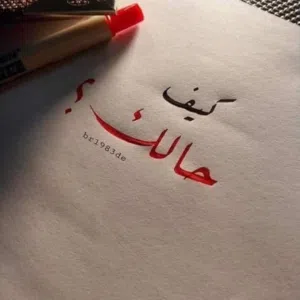 كيف
حالك؟
br1983de